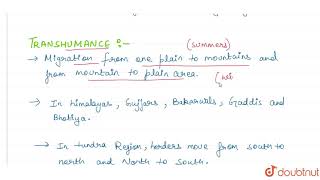 TRANSHUMANCE :- (summers)
→ Migration from one plain to mountains and
from mountain to plain area. (wi
→ In himalayas, Gujjars, Bakarwals, Gaddis and
Bhotiya.
→ In tundra Region, herders move from south to
north and North to South.
doubtnut